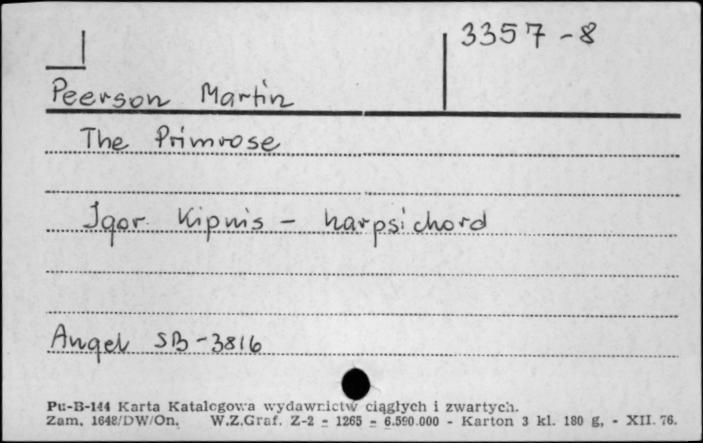 3357-8
Peerson Martin
The Primrose
Igor Kipnis - harpsichord
Angel SB-3816
Pu-B-144 Karta Katalogowa wydawnictw ciągłych i zwartych.
Zam. 1648/DW/On. W.Z.Graf. Z-2 - 1265 - 6.590.000 - Karton 3 kl. 180 g, - XII. 76.